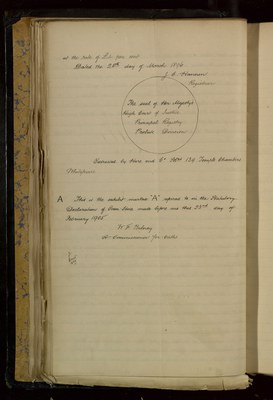 at the rate of
Dated the 28th day of March 1896
Registrar
The seal of Her Majesty's
High Court of Justice
Principal Registry
Probate Division
Extracted by Hare and Co 134 Temple Chambers
A This is the exhibit marked "A" referred to in the Statutory
Declaration of made before me this 23rd day of
February 1905
A Commissioner for Oaths